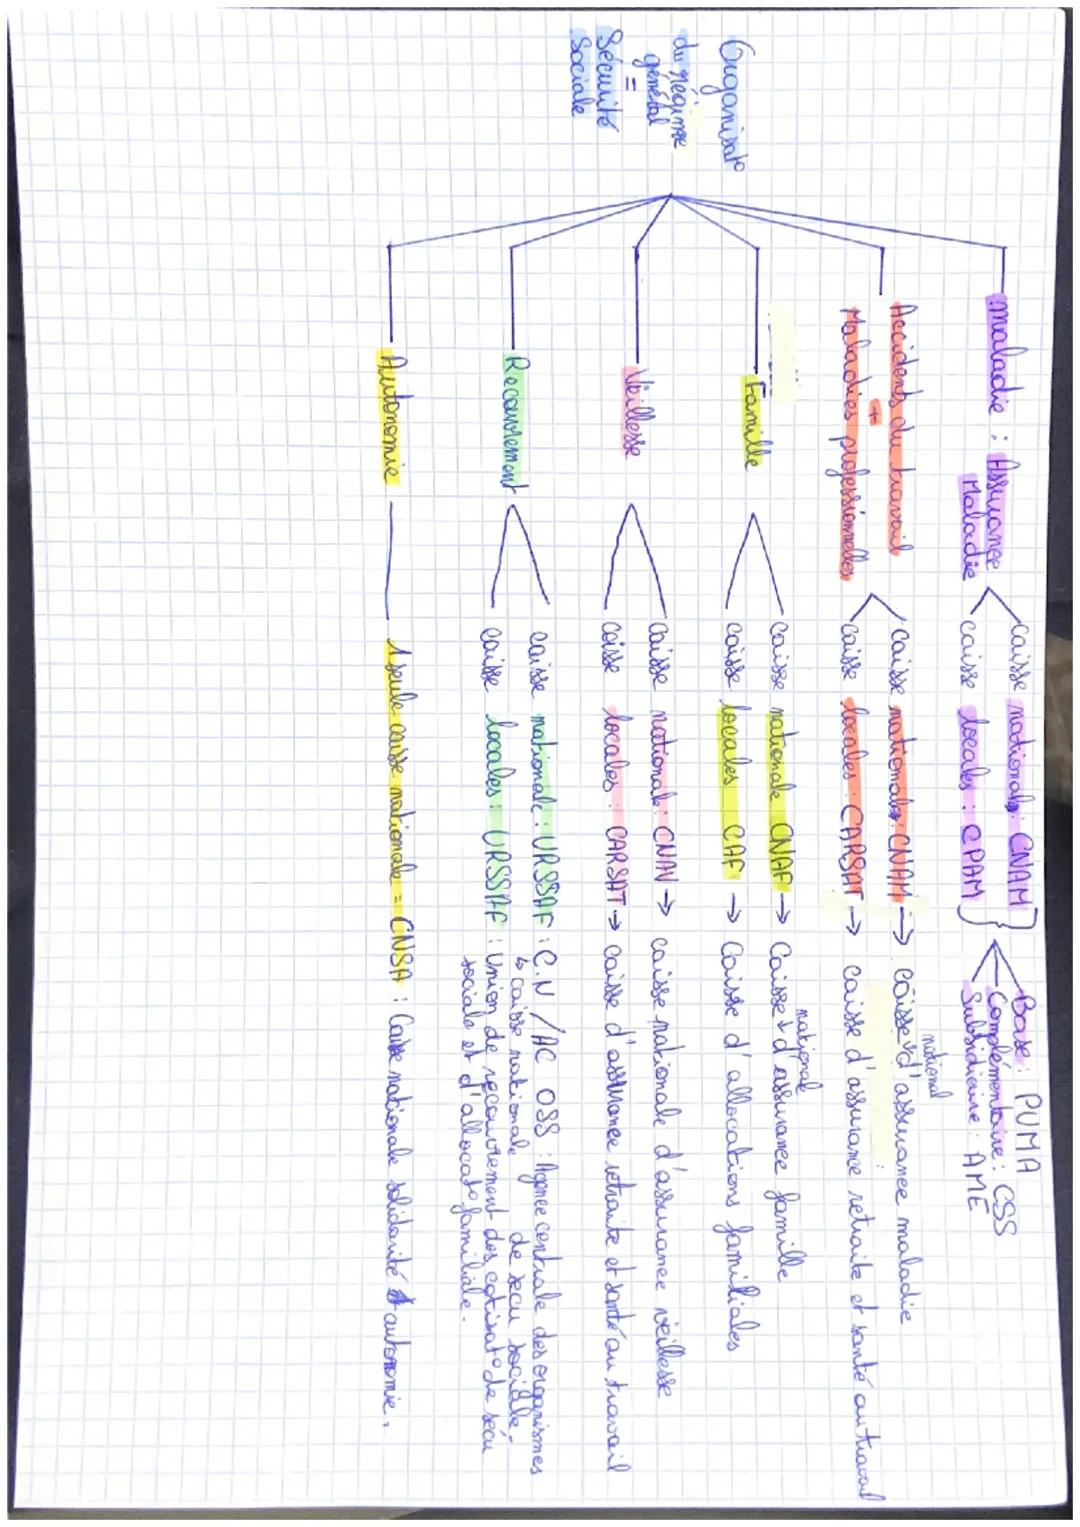 Organisat°
du régime
général
=
Sécurité
Sociale
maladie : Assurance
Maladie
caisse nationale : CNAM
caisse locales : CPAM
Base : PUMA
Complémentaire : CSS
Subsidiaire : AME
Accidents du travail
+
Maladies professionnelles
caisse nationale : CNAM → caisse d'assurance maladie
national
caisse locales : CARSAT → caisse d'assurance retraite et santé au travail
Famille
caisse nationale CNAF → Caisse d'assurance famille
national
caisse locales CAF → Caisse d'allocations familiales
Veillesse
caisse nationale : CNAV → caisse nationale d'assurance veillesse
caisse locales : CARSAT → caisse d'assurance retraite et santé au travail
Recouvrement
caisse nationale : URSSAF : C.N / AC OSS : Agence centrale des organismes
↳ caisse nationale de secu sociale.
caisse locales : URSSAF : Union de recouvrement des cotisat° de secu
sociale et d'allocat° familiale.
Autonomie
1 seule caisse nationale = CNSA : Caisse nationale solidarité autonomie.